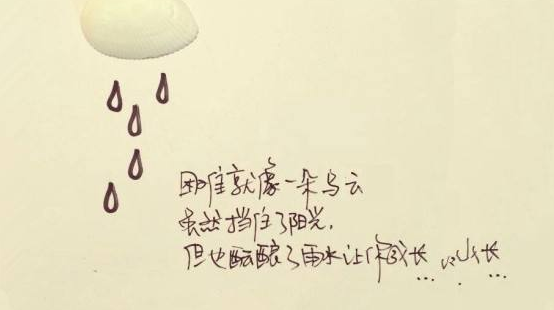 困难就像一朵乌云
虽然挡住了阳光，
但也酝酿了雨水让你成长
... ...